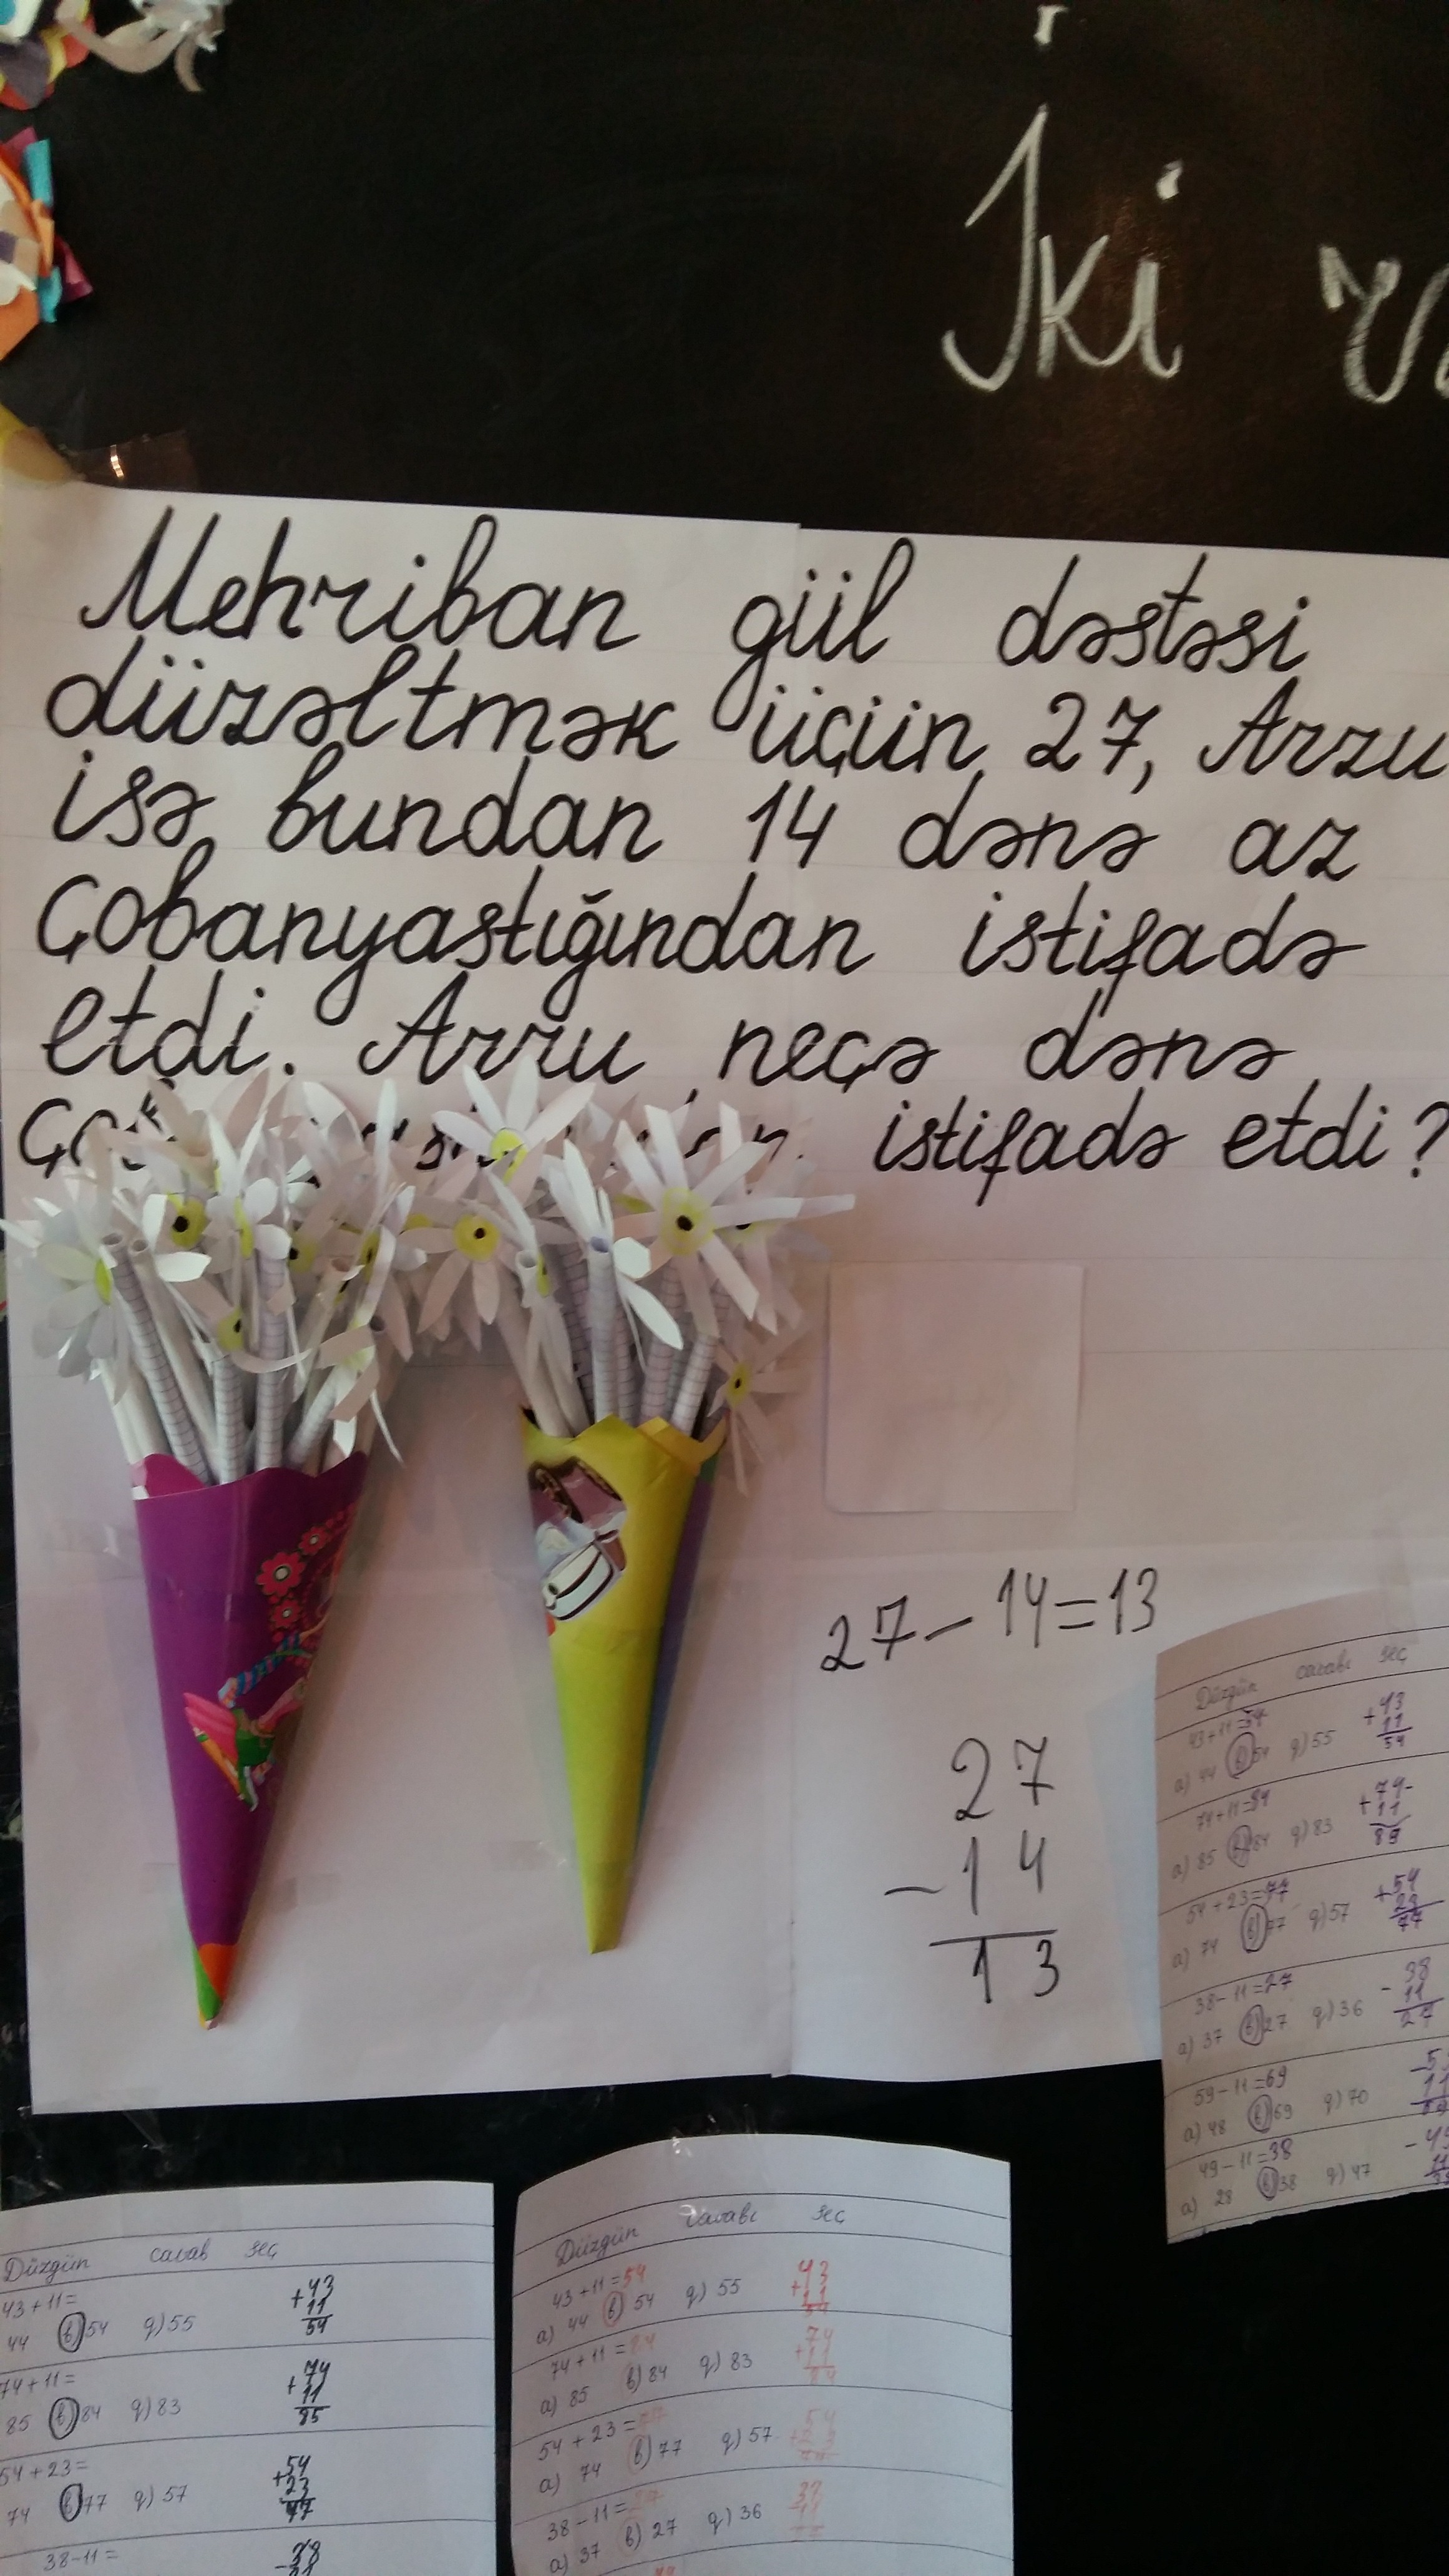 İki
Mehriban gül dəstəsi
düzəltmək üçün 27, Arzu
isə bundan 14 dənə az
çobanyastığından istifadə
etdi. Arzu neçə dənə
istifadə etdi?
27 - 14 = 13
27
- 14
13
Düzgün cavabı seç
43+11=54
a) 44 b) 54 q) 55
+43
11
54
74+11=84
a) 85 b) 84 q) 83
+74
11
54+23=77
a) 74 b) 77 q) 57
+54
23
77
38-11=27
a) 37 b) 27 q) 36
- 38
11
27
59-11=69
a) 48 b) 69 q) 70
49-11=38
a) 28 b) 38 q) 47
Düzgün cavab seç
43+11=
44 b) 54 q) 55
+43
11
54
74+11=
85 b) 84 q) 83
+74
11
85
54+23=
74 b) 77 q) 57
+54
23
38-11=
Düzgün cavabı seç
43+11=54
a) 44 b) 54 q) 55
+43
11
54
74+11=84
a) 85 b) 84 q) 83
+74
11
84
54+23=
a) 74 b) 77 q) 57
38-11=
a) 37 b) 27 q) 36